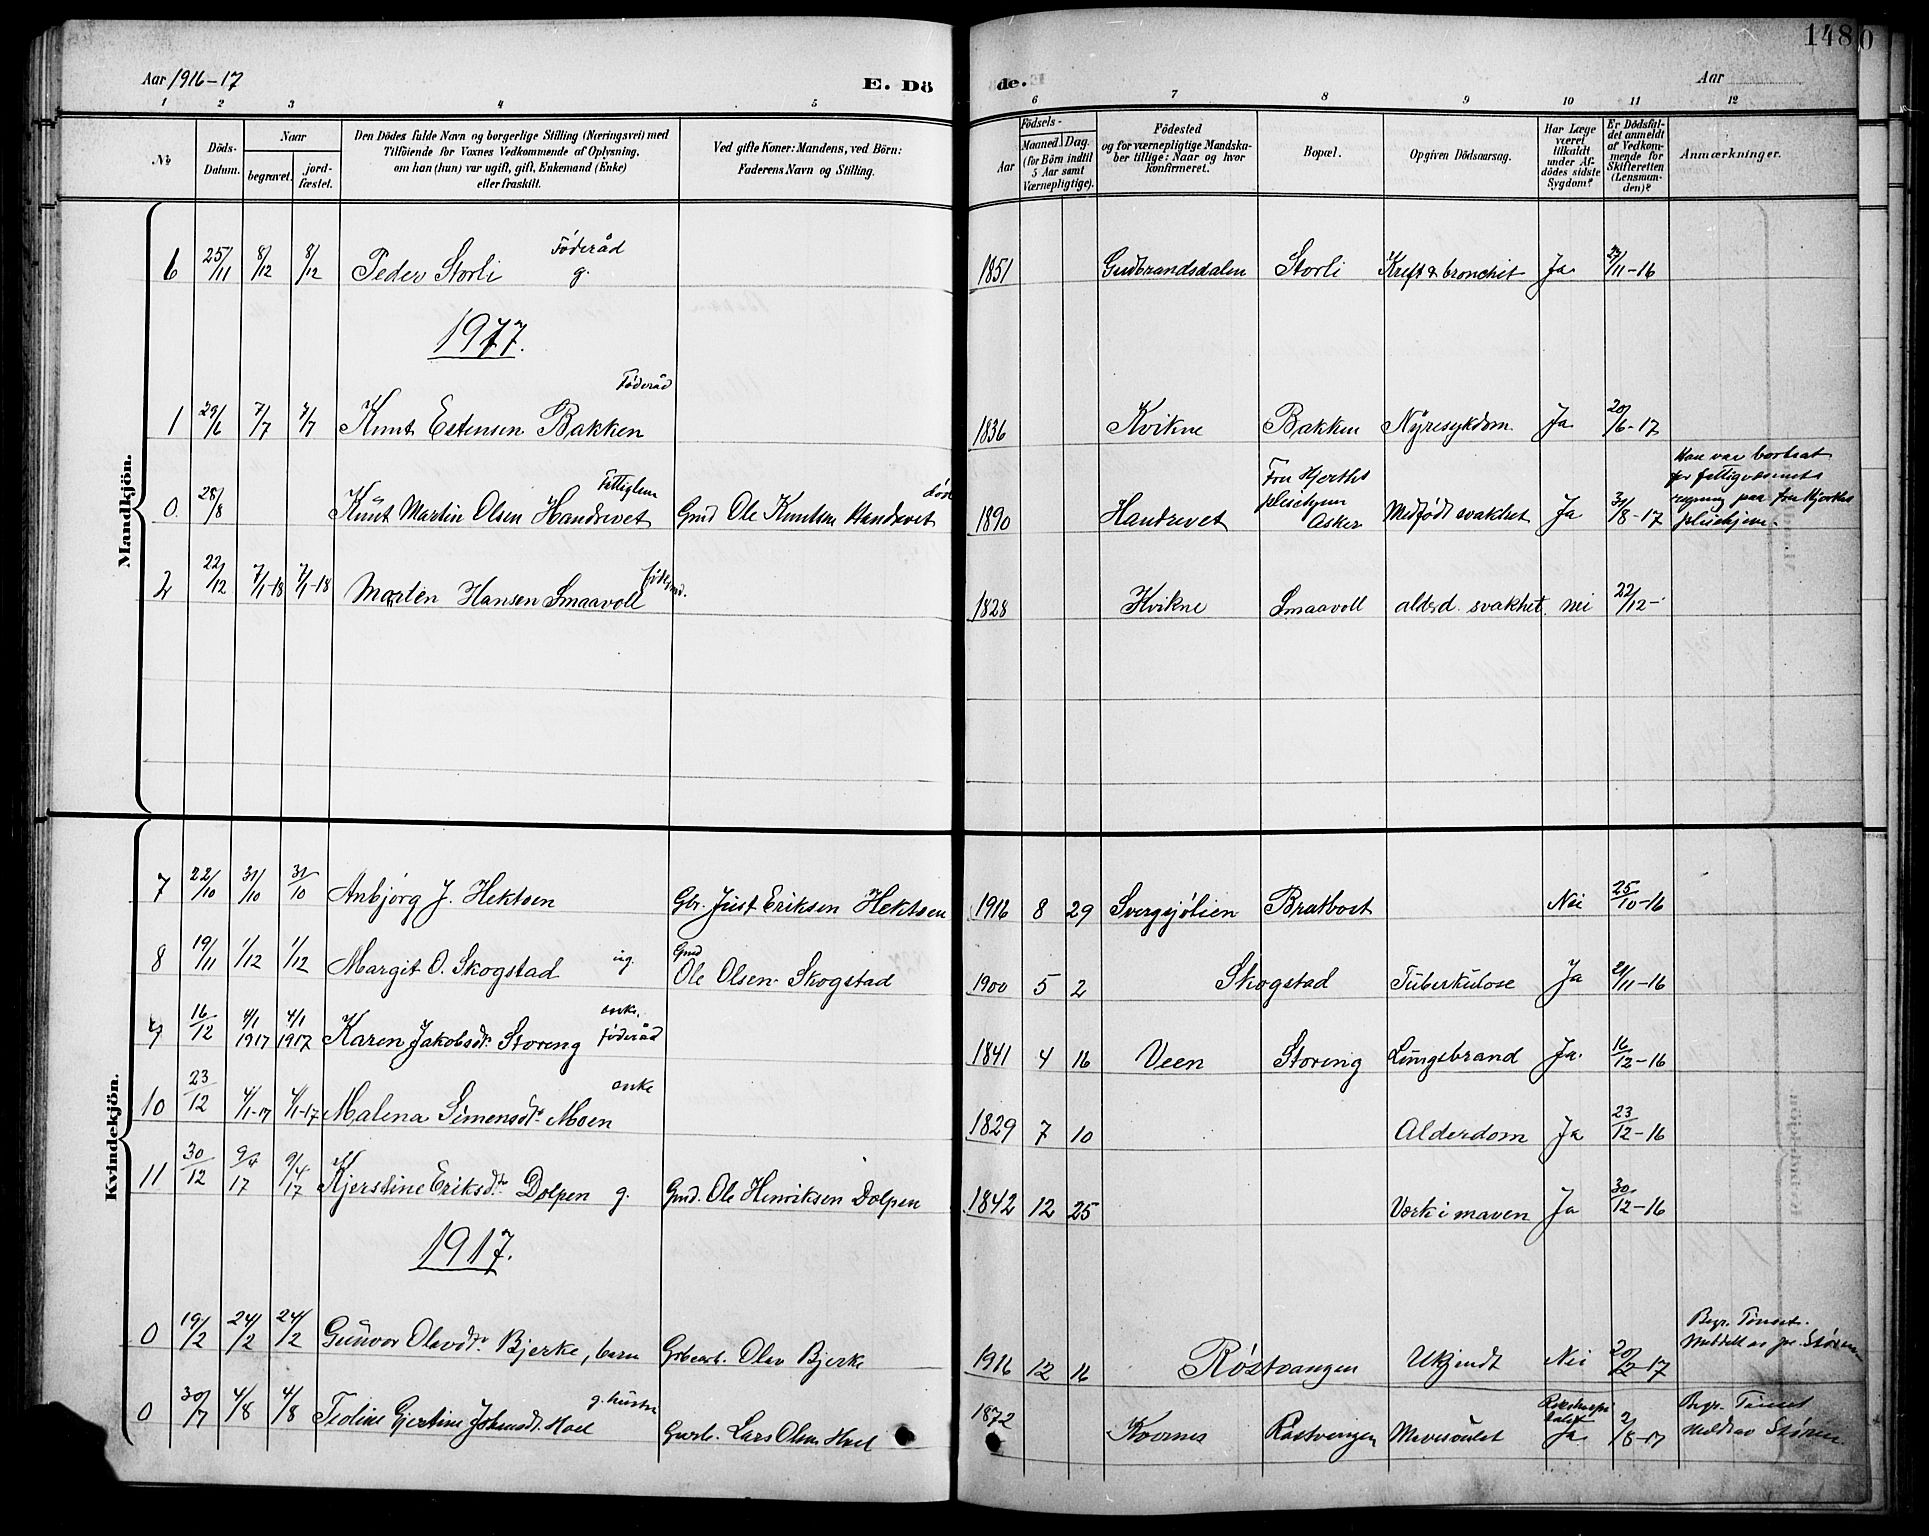 Aar 1916-17
E. Dö
de.
Aar
148
0
1 2 3 4 5 6 7 8 9 10 11 12
No
Döds-Datum.
Naar
begravet.
jord-fæstet.
Den Dödes fulde Navn og borgerlige Stilling (Næringsvei) med
Tilföiende for Voxnes Vedkommende af Oplysning,
om han (hun) var ugift, gift, Enkemand (Enke)
eller fraskilt.
Ved gifte Koner: Mandens, ved Börn:
Faderens Navn og Stilling.
Födsels-
Aar
Maaned. Dag.
(for Börn indtil
5 Aar samt
Værnepligtige).
Födested
og for værnepligtige Mandska-
ber tillige: Naar og hvor
konfirmeret.
Bopæl.
Opgiven Dödsaarsag.
Har Læge
været
tilkaldt
under Af-
dödes sidste
Sygdom?
Er Dödsfal-
det anmeldt
af Vedkom-
mende for
Skifteretten
(Lensman-
den)?
Anmærkninger.
Mandkjön.
6 25/11 8/12 8/12 Peder Storli Föderåd g. 1851 Gudbrandsdalen Storli Kreft & bronchit Ja 27/11-16
1917.
1 29/6 7/7 7/7 Knut Estensen Bakken Föderåd 1836 Kvikne Bakken Nyresykdom. Ja 20/6-17
0 28/8 Knut Martin Olsen Handrevet Fattiglem Gmd Ole Knutsen Handrevet död 1890 Handrevet Fru Hjorths pleiehjem Asker Medfödt svakhet Ja 31/8-17 Han var bortsat for fattigvæsenets regning paa fru Hjorths pleiehjem.
2 22/12 7/1-18 7/1-18 Morten Hansen Smaavoll 1828 Kvikne Smaavoll alderd. svakhet. nei 22/12-
Kvindekjön.
7 22/10 31/10 31/10 Anbjörg J. Hektoen Gbr. Just Eriksen Hektoen 1916 8 29 Svergsjölien Bratbost Nei 25/10-16
8 19/11 1/12 1/12 Margit O. Skogstad ug. Gmd Ole Olsen Skogstad 1900 5 2 Skogstad Tuberkulose Ja 21/11-16
9 16/12 4/1 1917 4/1 1917 Karen Jakobsdr. Storeng enke. föderåd 1841 4 16 Veen Storeng Lungebrand Ja. 16/12-16
10 23/12 4/1-17 4/1-17 Malena Simensdr. Moen enke 1829 7 10 Alderdom Ja 23/12-16
11 30/12 9/4 17 9/4 17 Kjerstine Eriksdr. Dolpen g. Gmd. Ole Henriksen Dolpen 1842 12 25 Verk i maven Ja 30/12-16
1917.
0 19/2 24/2 24/2 Gunvor Olavsdr. Bjerke, barn Olav Bjerke 1916 12 16 Röstvangen Ukjendt Nei 20/2-17 Begr. Tönset. Meddelt av pr. Stören
0 30/7 4/8 4/8 Teoline Gjertine Johansdr. Hoel g. hustru Lars Olsen Hoel 1872 Kvernes Röstvangen Mavesaulet Ja 2/8-17 Begr. Tönset Meldt av Stören.